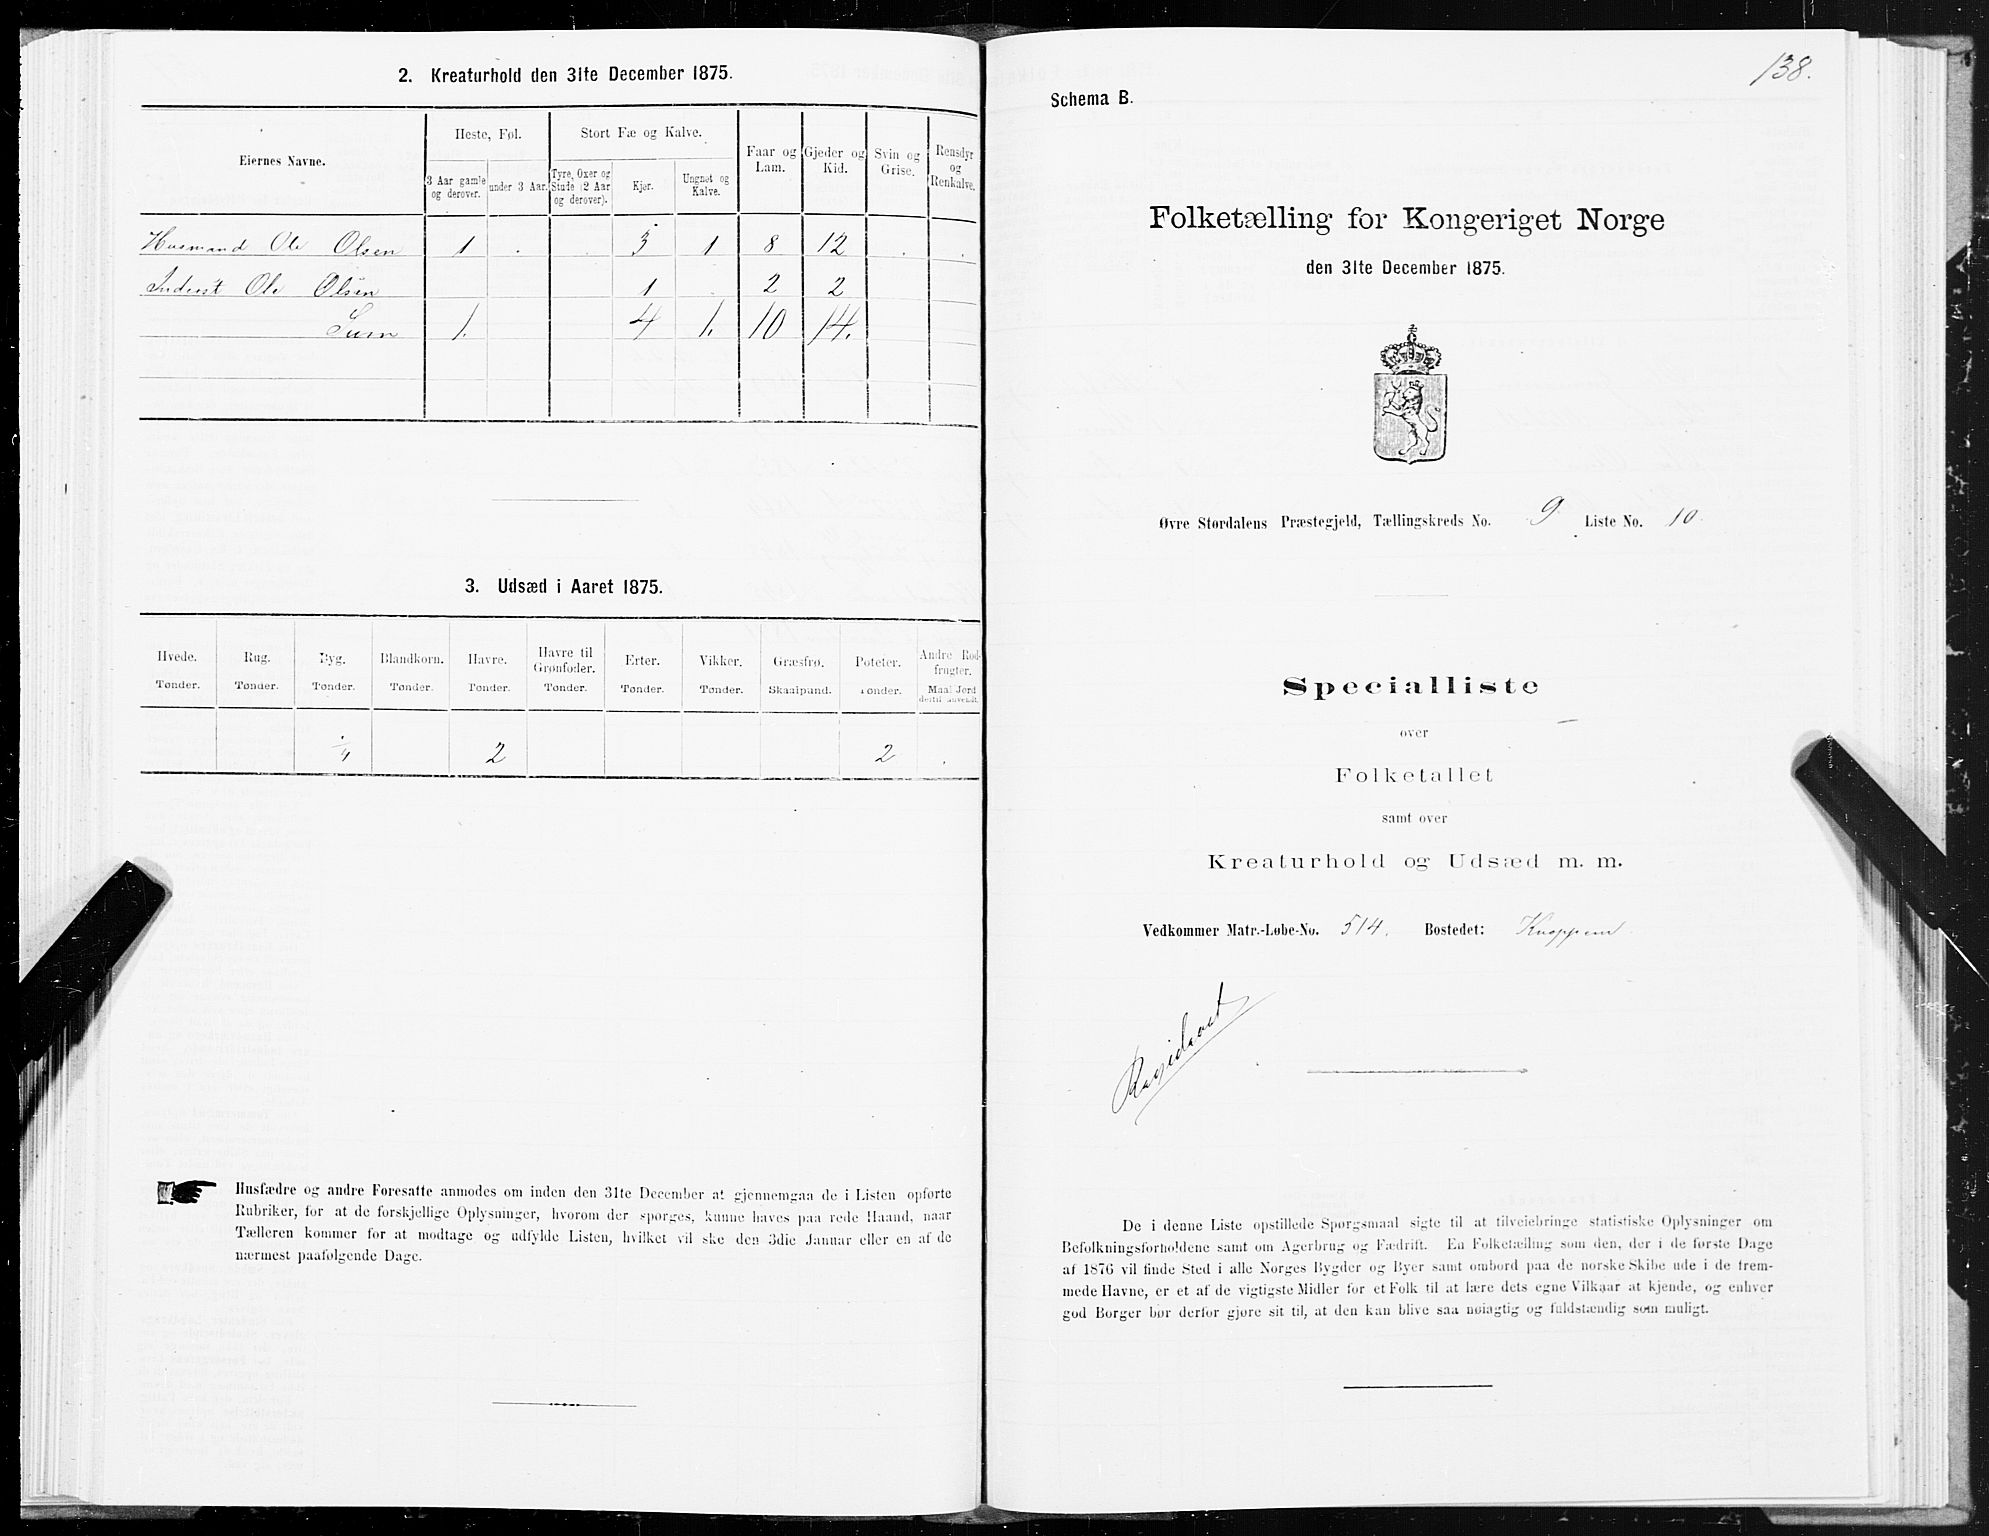 2. Kreaturhold den 31te December 1875.
Eiernes Navne.
Heste, Føl.
Stort Fæ og Kalve.
Faar og Lam.
Gjeder og Kid.
Svin og Grise.
Rensdyr og Renkalve.
3 Aar gamle og derover.
under 3 Aar.
Tyre, Oxer og Stude (2 Aar og derover).
Kjør.
Ungnøt og Kalve.
Husmand Ole Olsen 1 . . 3 1 8 12 . .
Inderst Ole Olsen 1 . 2 2
Sum 1. 4 1. 10 14.
3. Udsæd i Aaret 1875.
Hvede. Rug. Byg. Blandkorn. Havre. Havre til Grønfoder. Erter. Vikker. Græsfrø. Poteter. Andre Rodfrugter.
Tønder. Tønder. Tønder. Tønder. Tønder. Tønder. Tønder. Tønder. Skaalpund. Tønder. Maal Jord dertil anvendt.
1/4 2 2 .
Husfædre og andre Foresatte anmodes om inden den 31te December at gjennemgaa de i Listen opførte
Rubriker, for at de forskjellige Oplysninger, hvorom der spørges, kunne haves paa rede Haand, naar
Tælleren kommer for at modtage og udfylde Listen, hvilket vil ske den 3die Januar eller en af de
nærmest paafølgende Dage.
138.
Schema B.
Folketælling for Kongeriget Norge
den 31te December 1875.
Øvre Størdalens Præstegjeld, Tællingskreds No. 9 Liste No. 10.
Specialliste
over
Folketallet
samt over
Kreaturhold og Udsæd m. m.
Vedkommer Matr.-Løbe-No. 514. Bostedet: Knoppen
De i denne Liste opstillede Spørgsmaal sigte til at tilveiebringe statistiske Oplysninger om
Befolkningsforholdene samt om Agerbrug og Fædrift. En Folketælling som den, der i de første Dage
af 1876 vil finde Sted i alle Norges Bygder og Byer samt ombord paa de norske Skibe ude i de frem-
mede Havne, er et af de vigtigste Midler for et Folk til at lære dets egne Vilkaar at kjende, og enhver
god Borger bør derfor gjøre sit til, at den kan blive saa nøiagtig og fuldstændig som muligt.